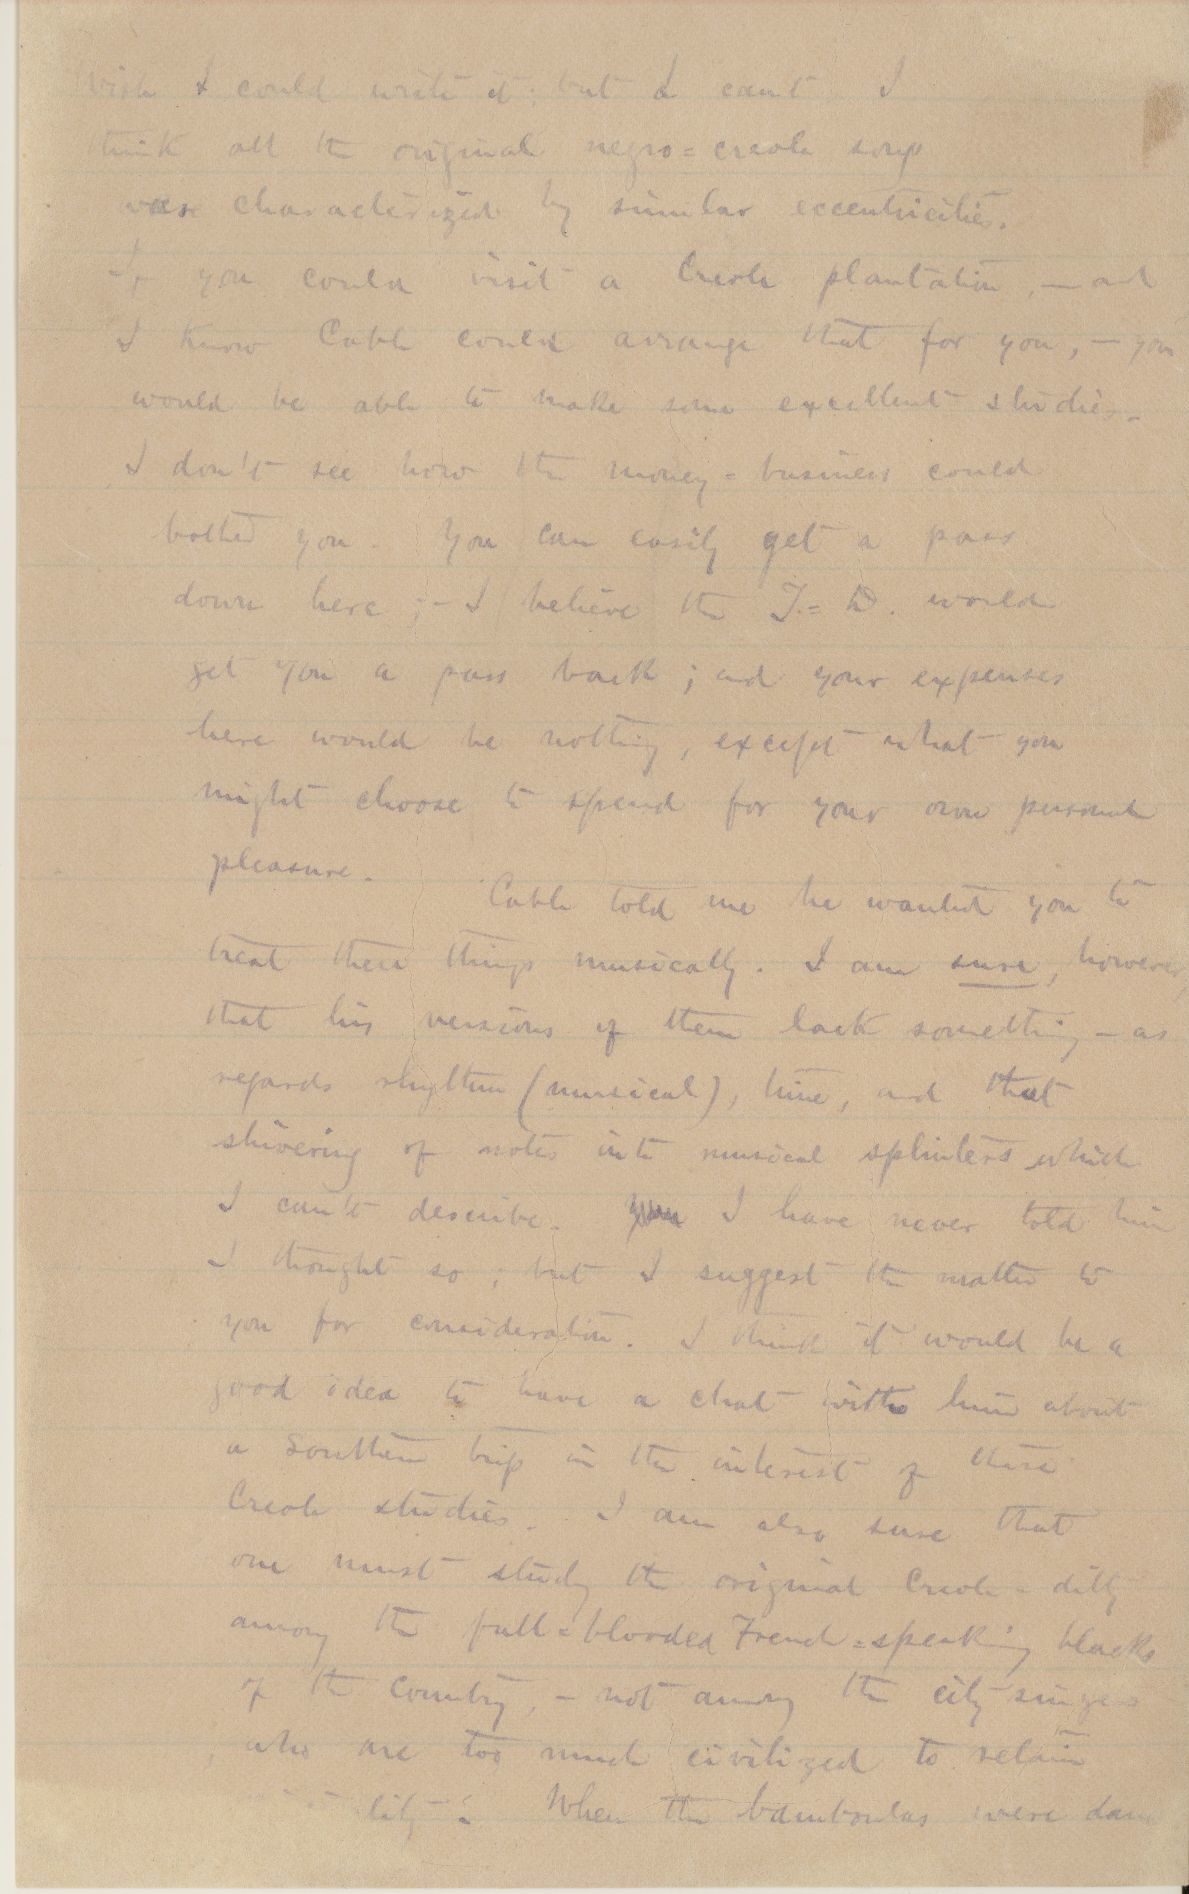 Wish I could write it; but I can't I
think all the original negro=creole songs
were characterized by similar eccentricities.
If you could visit a Creole plantation, — and
I know Cable could arrange that for you, — you
would be able to make some excellent studies.
I don't see how the money=business could
bother you. You can easily get a pass
down here; — I believe the T.=D. would
get you a pass back; and your expenses
here would be nothing, except what you
might choose to spend for your own personal
pleasure.
Cable told me he wanted you to
treat these things musically. I am sure, however,
that his versions of them lack something — as
regards rhythm (musical), time, and that
shivering of notes into musical splinters which
I can't describe. I have never told him
I thought so; but I suggest the matter to
you for consideration. I think it would be a
good idea to have a chat with him about
a Southern trip in the interest of these
Creole studies. I am also sure that
one must study the original Creole=ditty
among the full=blooded French=speaking blacks
of the country, — not among the city singers
who are too much civilized to retain
When the bamboulas were danc